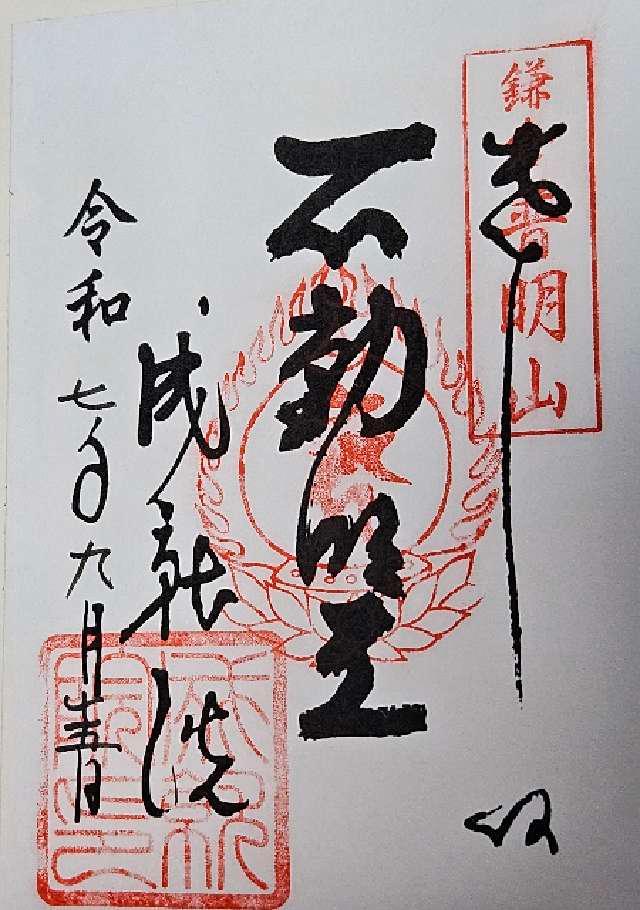 鎌倉普明山
奉拝
不動明王
成就院
令和七年九月